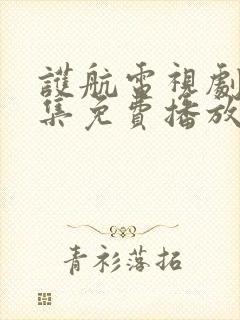 護航電視劇
集免費播放
青衫落拓